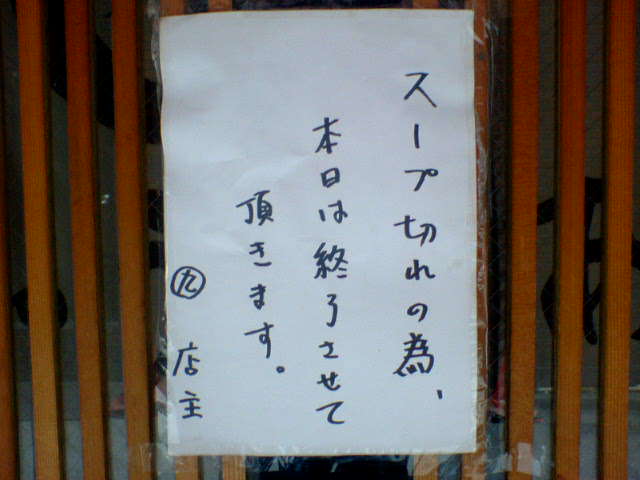 スープ切れの為、
本日は終了させて
頂きます。
㊈ 店主